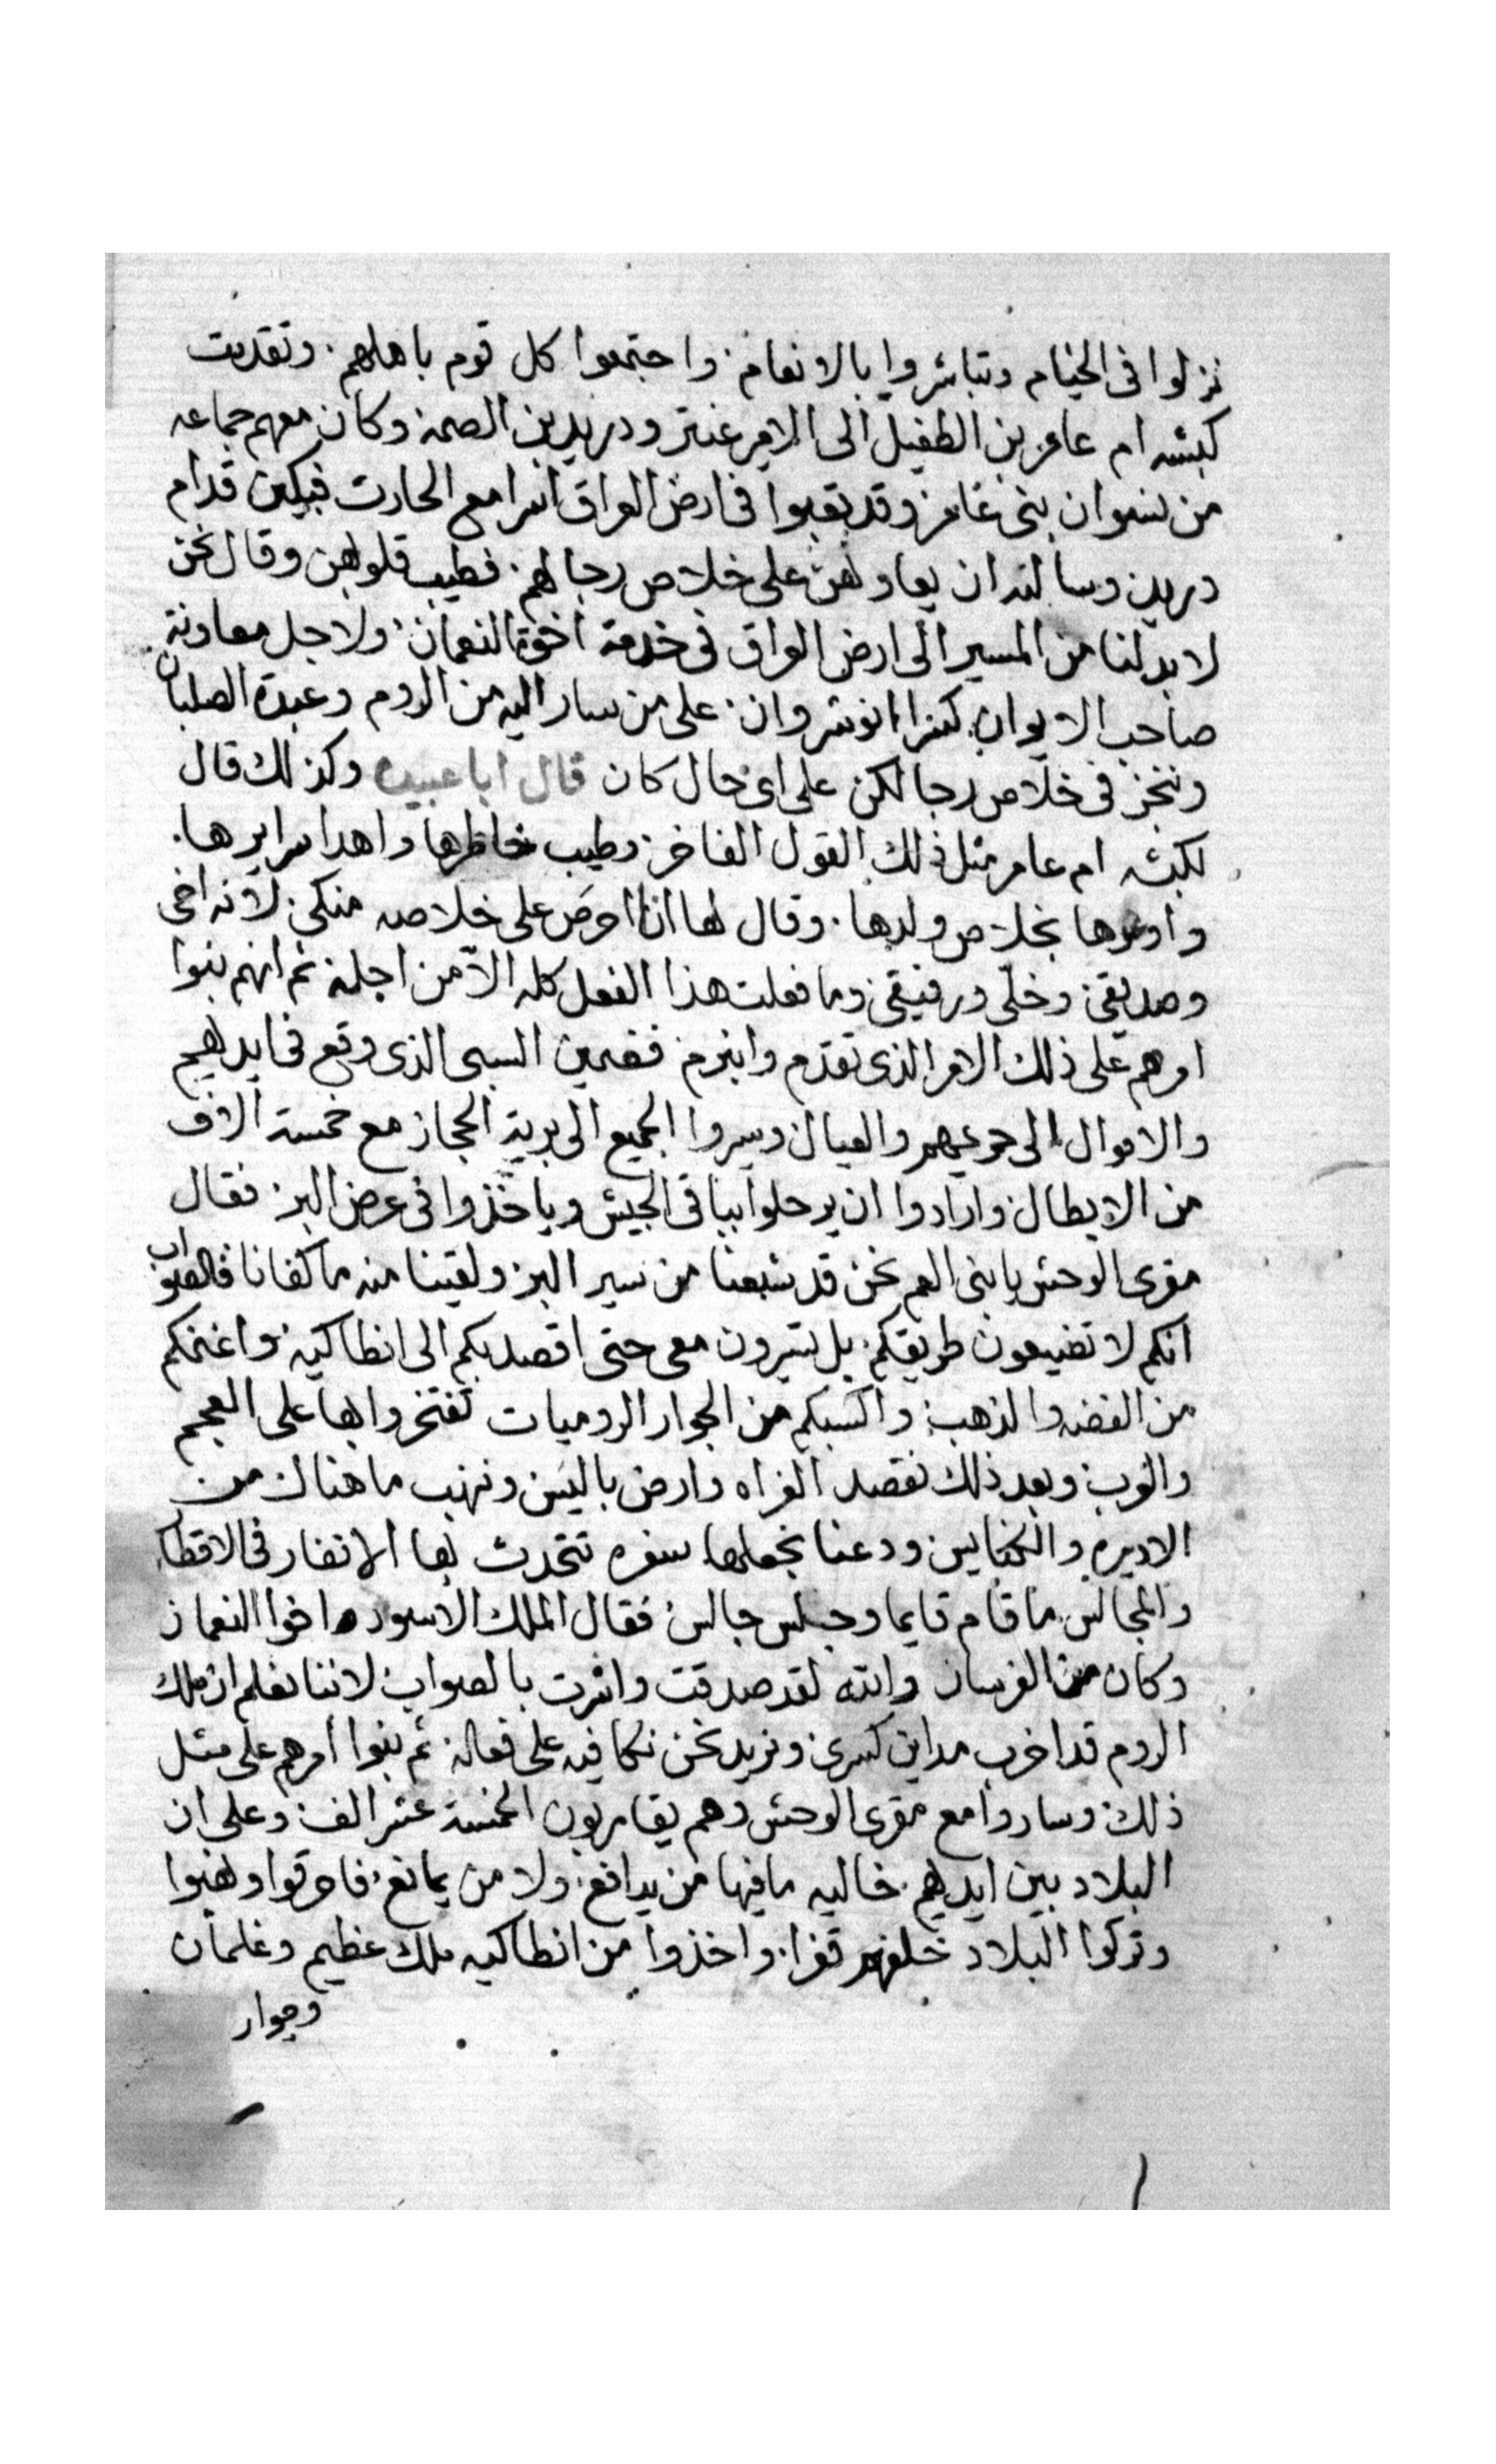 نزلوا فى الخيام وتباشروا بالانعام. واجتمعوا كل قوم باهلهم. وتقدمت
كبشه ام عامر بن الطفيل الى الامير عنتر ودريد بن الصمه وكان معهم جماعه
من نسوان بنى عامر وقد بقيوا فى ارض العراق اسرا مع الحارت فبكين قدام
دريد وسالته ان يعاونهن على خلاص رجالهم. فطيب قلوبهن وقال نحن
لا بد لنا من المسير الى ارض العراق فى خدمة اخوة النعمان. ولاجل معاونة
صاحب الايوان كسرا انوشروان. على من سار اليه من الروم وعبدة الصلبان
وننجز فى خلاص رجالكن على اى حال كان قال ابا عبيده وكذلك قال
لكبشه ام عامر مثل ذلك القول الفاخر. وطيب خاطرها واهدا سرايرها.
واوعدها بخلاص ولدها. وقال لها انا احرص على خلاصه منكى. لانه اخى
وصديقى وخلى ورفيقى وما فعلت هذا الفعل كله الا من اجله ثم انهم بنوا
امرهم على ذلك الامر الذى تقدم وانبرم. فضمين السبى الذى وقع فى ايديهم
والاموال الى حريمهم والعيال وسيروا الجميع الى برية الحجاز مع خمسة الاف
من الابطال وارادوا ان يرحلوا بباقى الجيش وياخذوا فى عرض البر. فقال
مقرى الوحش يا بنى العم نحن قد شبعنا من سير البر. ولقينا منه ما كفانا فالصواب
انكم لا تضيعون طريقكم. بل تسيرون معى حتى اقصد بكم الى انطاكيه. واغنمكم
من الفضه والذهب. واكسبكم من الجوار الروميات تفتخروا بها على العجم
والعرب وبعد ذلك نقصد الفراه وارض باليس وننهب ما هناك من
الاديره والكنايس ودعنا نجعلها سفره تتحدث بها الانفار فى الاقطار
والمجالس ما قام قايما وجلس جالس. فقال الملك الاسود اخوا النعمان
وكان من الفرسان والله لقد صدقت واشرت بالصواب لاننا نعلم ان ملك
الروم قد اخرب مداين كسرى ونريد نحن نكافيه على فعاله. ثم بنوا امرهم على مثل
ذلك. وساروا مع مقرى الوحش وهم يقاربون الخمسة عشر الف. وعلى ان
البلاد بين ايديهم. خاليه ما فيها من يدافع. ولا من يمانع. فاحرقوا ونهبوا
وتركوا البلاد خلفهم قفرا. واخذوا من انطاكيه ملك عظيم وغلمان
وجوار